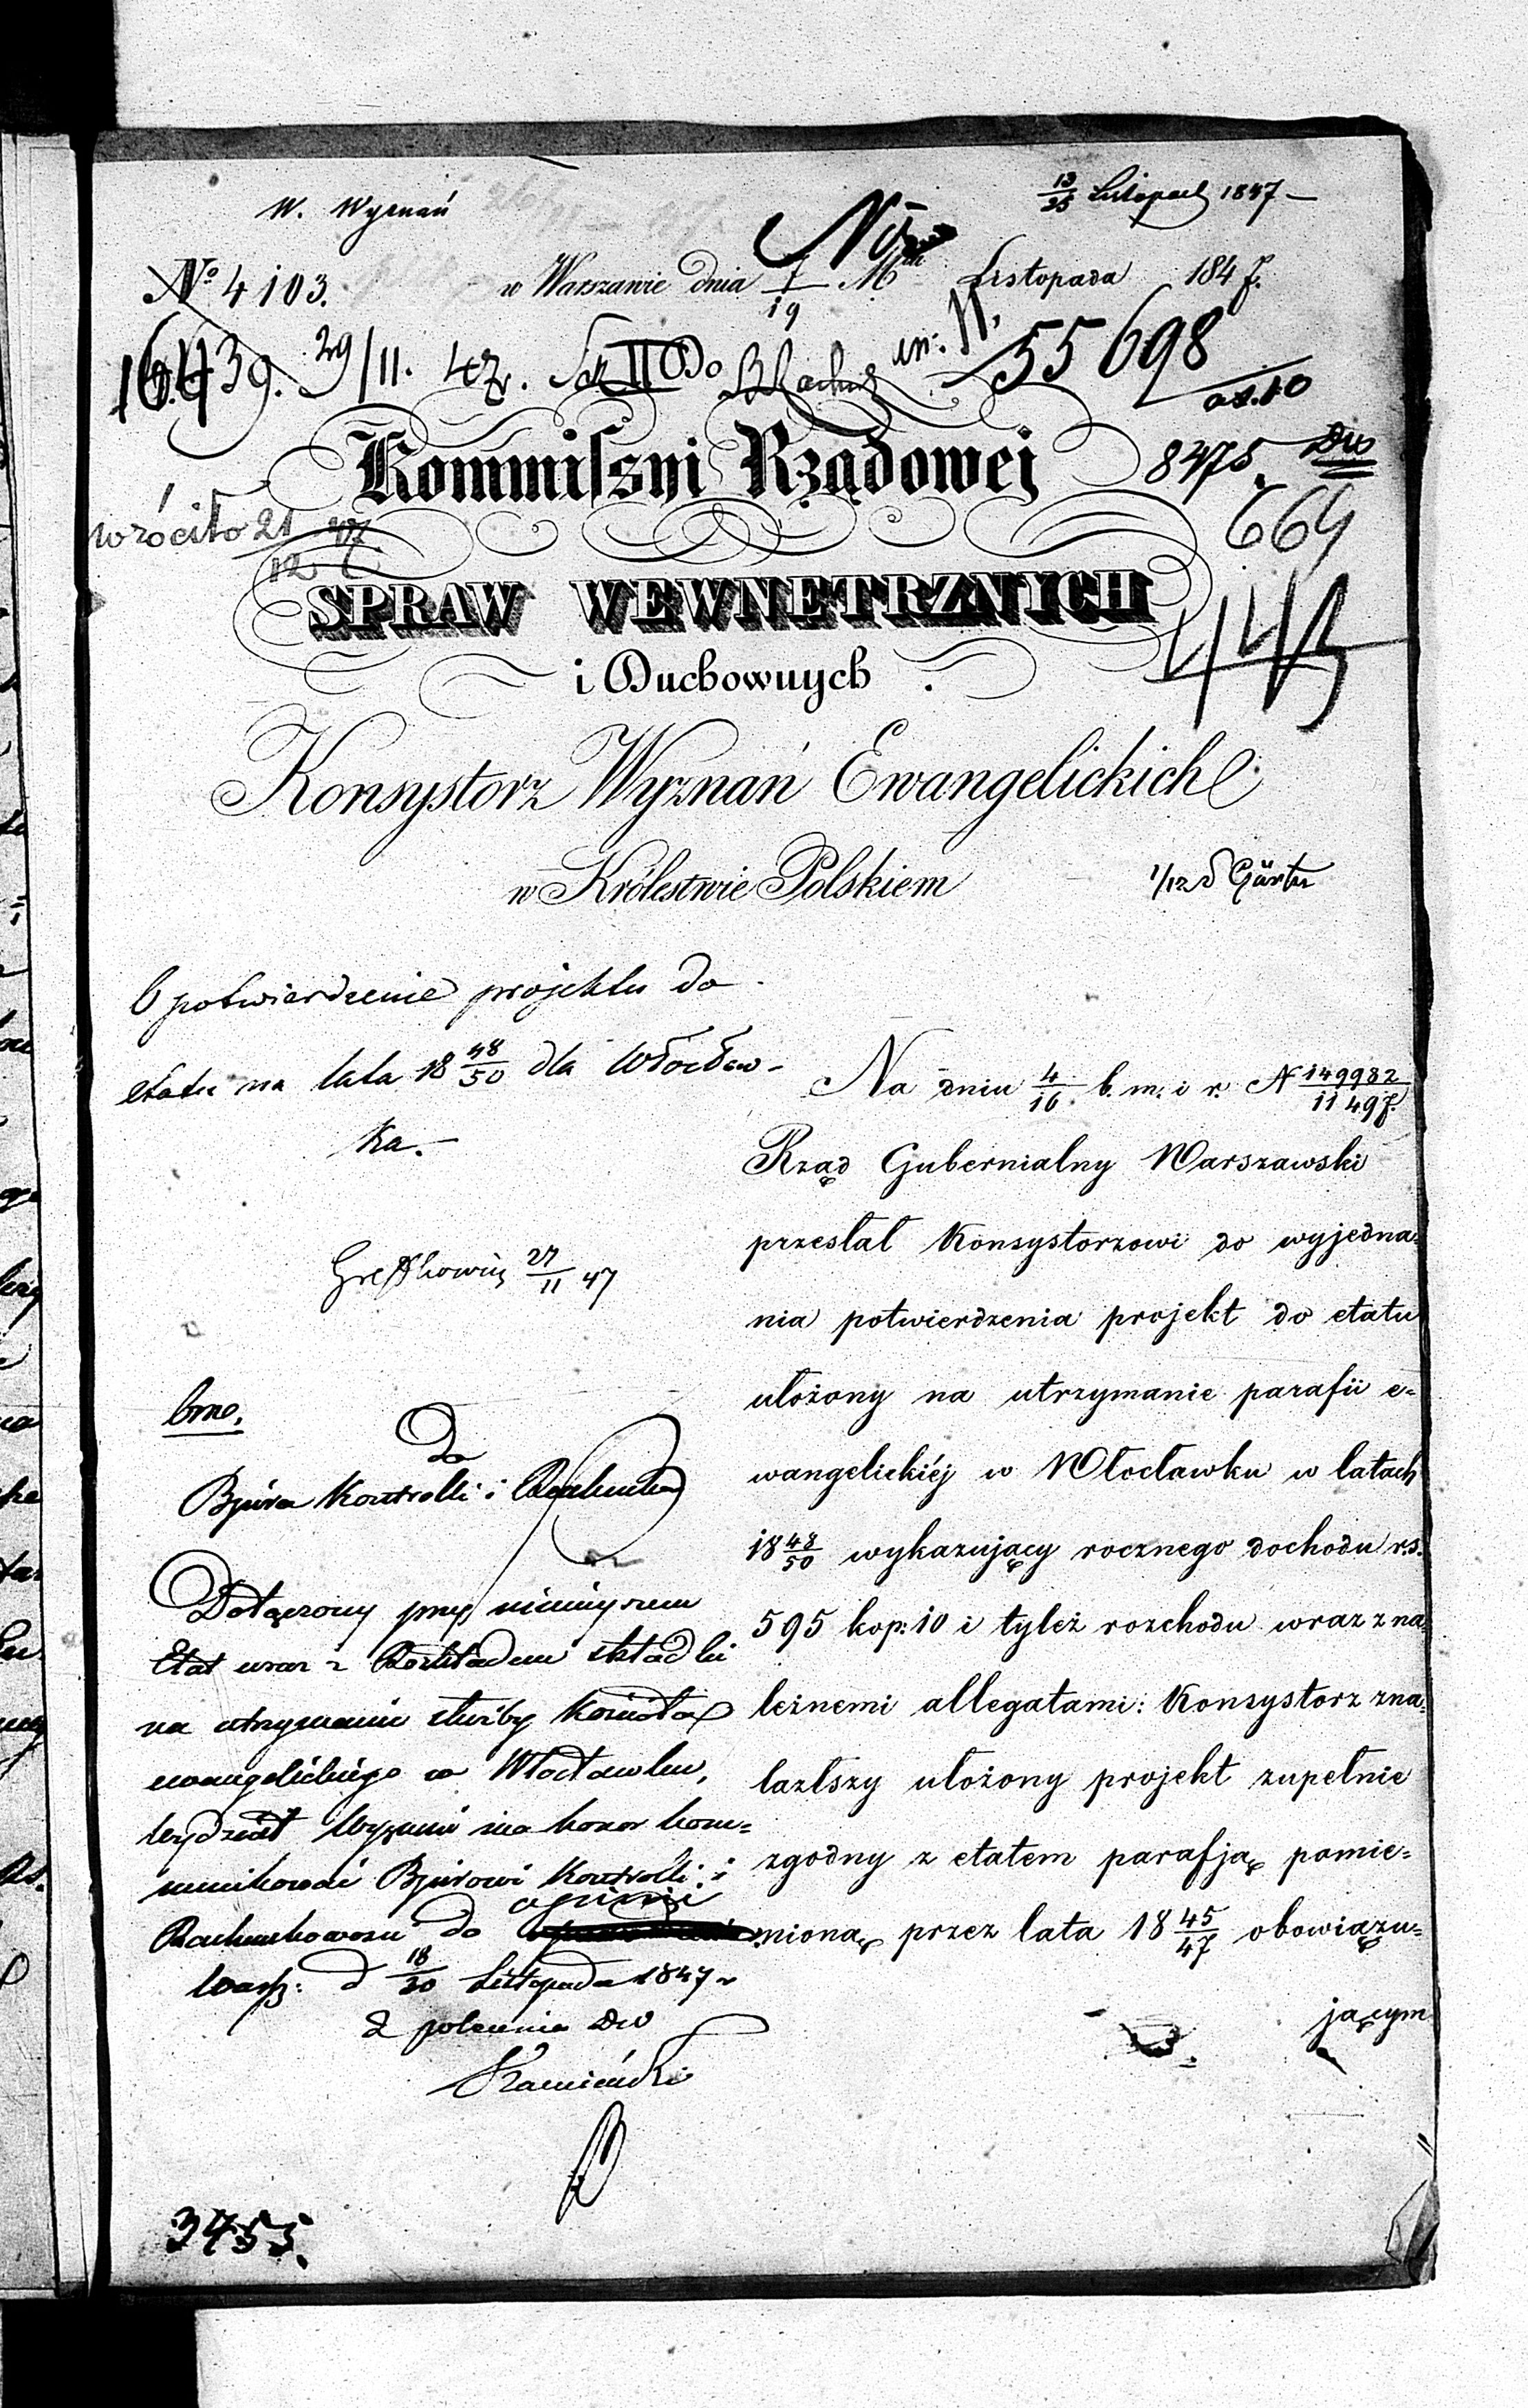 W. Wyznań
13/25 Listopad 1847
No 4103.
w Warszawie dnia 7/19 Mca Listopada 1847.
16439. 29/11. 47.
55698
Do
Kommissyi Rządowej
8475.
wróciło 21/12 47
664
SPRAW WEWNĘTRZNYCH
i Duchownych
Konsystorz Wyznań Ewangelickich
w Królestwie Polskiem
1/12
O potwierdzenie projektu do
etatu na lata 18 48/50 dla Włocław-
ka.
27/11 47
Na dniu 4/16 b. m. i r. N 149982/11497.
Rząd Gubernialny Warszawski
przesłał Konsystorzowi do wyjedna=
nia potwierdzenia projekt do etatu
ułożony na utrzymanie parafii e=
wangelickiéj w Włocławku w latach
18 48/50 wykazujący rocznego dochodu r.s.
595 kop: 10 i tyleż rozchodu wraz z na=
leżnemi allegatami: Konsystorz zna=
lazłszy ułożony projekt zupełnie
zgodny z etatem parafją pomie=
nioną przez lata 18 45/47 obowiązu=
jącym
Do
Bjóra Kontrolli i
Dołączony przy niniejszem
Etat wraz z Rozkładem składki
na utrzymanie służby Kościoła
ewangelickiego w Włocławku,
Wydział Wyznań ma honor kom=
munikować Bjórowi Kontrolli i
Rachunkowości do opinii
Warsz: d 18/30 Listopada 1847 r
Z polecenia
Kamiński
3455.